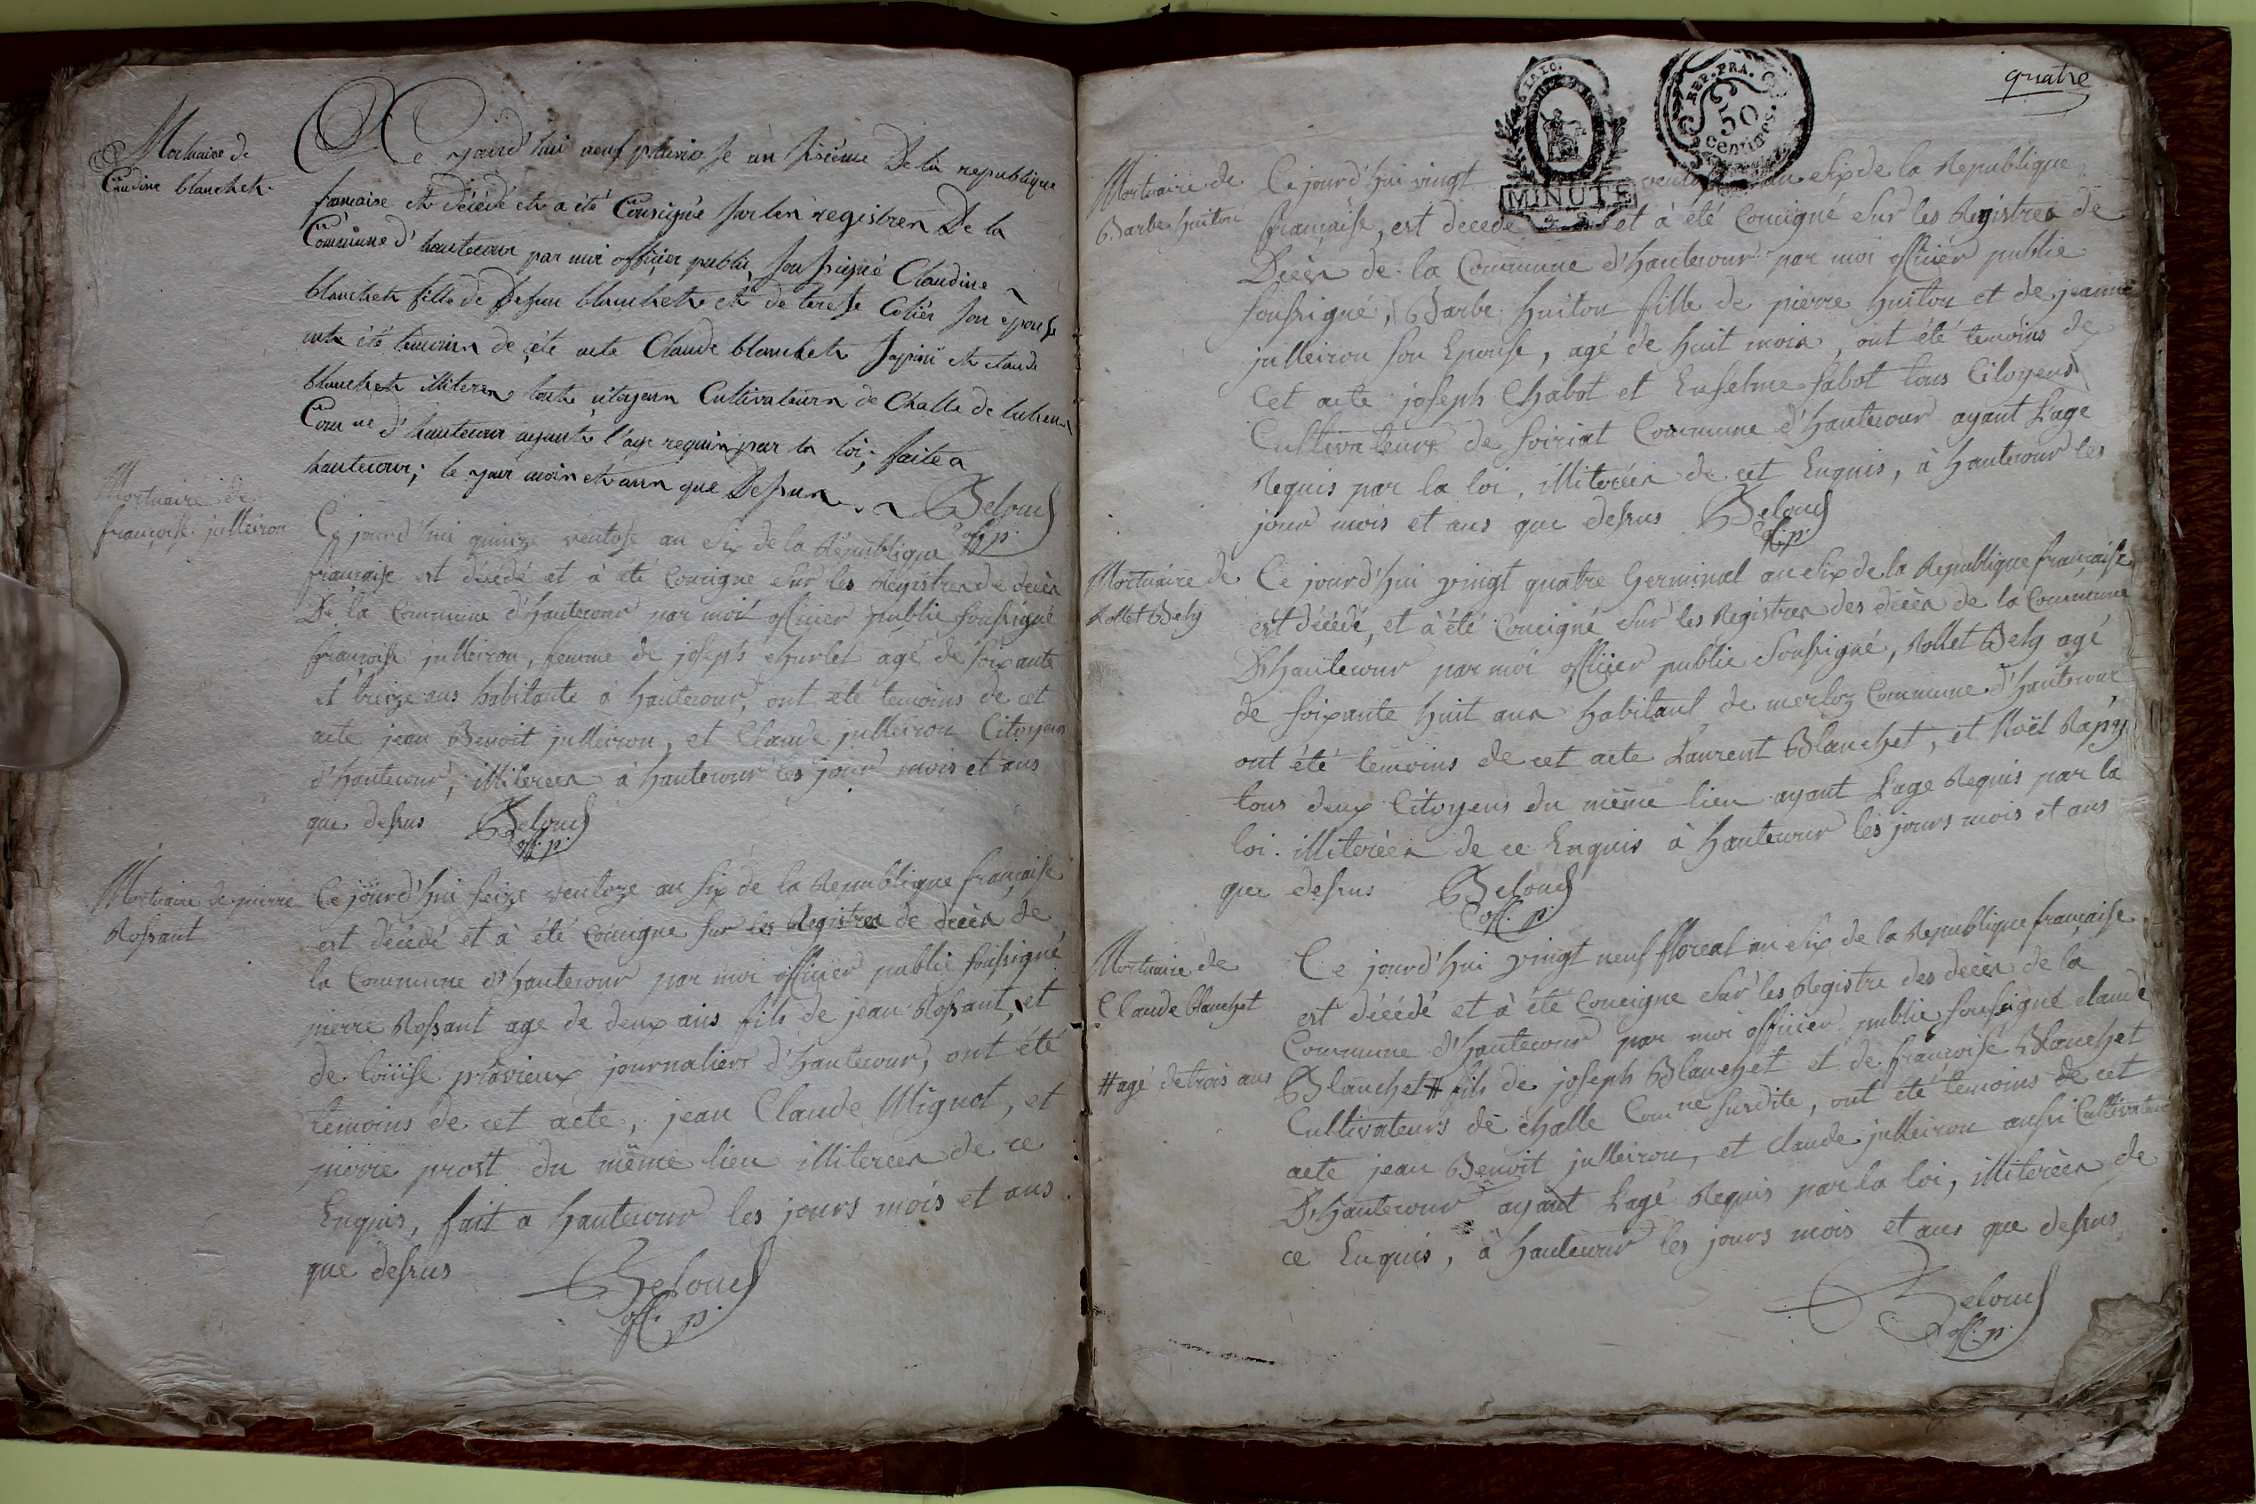 Mortuaire de
Claudine blanchet
Ce jourd'hui neuf pluviose an sisième De la republique
francaise et décédé et a été Consigné sur les registres De la
Commune d'hautecour par moi officier public soussigné Claudine
blanchet fille de Defun blanchet et de terese Cotier son epouse
ont été temoin de cete acte Claude blanchet et claude
blanchet illiteres touts citoyens Cultivateurs de Challe
Com ne d'hautecour ayant l'age requis par la loi; faite a
hautecour; le jour mois et ann que Desus
Beloud
off. p.
Mortuaire de
françoise julleiron
Ce jourd'hui quinze ventose an six de la République
française est décédé et à été Concigne sur les Registres de décès
De la Commune d'Hautecour par moi officier public soussigné
françoise julleiron, femme de joseph churlet agé de soixante
et treize ans habitante à hautecour, ont été temoins de cet
acte jean Benoit julleiron, et Claude julleiron Citoyens
d'Hautecour, illiterées à hautecour les jour mois et ans
que desus Beloud
off. p.
Mortuaire de pierre
Rossant
Ce jourd'hui seize ventoze an six de la Republique française
est décédé et à été concigne sur les Registres de décès de
la Commune d'Hautecour par moi officier public soussigné
pierre Rossant age de deux ans fils de jean Rossant, et
de loüise pravieux journaliers d'Hautecour, ont été
temoins de cet acte, jean Claude Mignot, et
pierre prost du même lieu illiterées de ce
Enquis, fait a hautecour les jours mois et ans
que desus
Beloud
off. p.
quatre
REP. FRA.
50
centimes.
MINUTE
Mortuaire de
Barbe huiton
Ce jourd'hui vingt ventose an six de la Republique
française, est decedé et à été Concigné sur les Registres de
Décès de la Commune d'Hautecour par moi officier public
soussigné, Barbe huiton fille de pierre huiton et de jeanne
julleiron son Epouse, agé de huit mois, ont été temoins de
Cet acte joseph Chabot et Enselme sabot tous Citoyens
Cultivateurs de soiriat Commune d'Hautecour ayant L'age
Requis par la loi, illiterées de cet Enquis, à hautecour les
jour mois et ans que desus Beloud
off. p.
Mortuaire de
Rollet Bely
Ce jourd'hui vingt quatre Germinal an six de la Republique française
est décédé, et à été Concigné sur les Registres des décès de la Commune
D'hautecour par moi officier public soussigné, Rollet Bely agé
de soixante huit ans habitant de merloz Commune d'hautecour
ont été temoins de cet acte Laurent Blanchet, et Noël Rapy
tous deux Citoyens du même lieu ayant L'age Requis par la
loi. illiterées de ce Enquis à Hautecour les jours mois et ans
que desus Beloud
off. p.
Mortuaire de
Claude blanchet
Ce jourd'hui vingt neuf floreal an six de la Republique française
est décédé et à été Concigne sur les Registre des décès de la
Commune d'hautecour par moi officier public soussigné claude
# agé de trois ans
Blanchet # fils de joseph Blanchet et de françoise Blanchet
Cultivateurs de challe Com ne susdite, ont été temoins de cet
acte jean Benoit julleiron, et claude julleiron aussi Cultivateurs
D'Hautecour ayant L'agé Requis par la loi, illiterées de
ce Enquis, à hautecour les jours mois et ans que desus
Beloud
off. p.